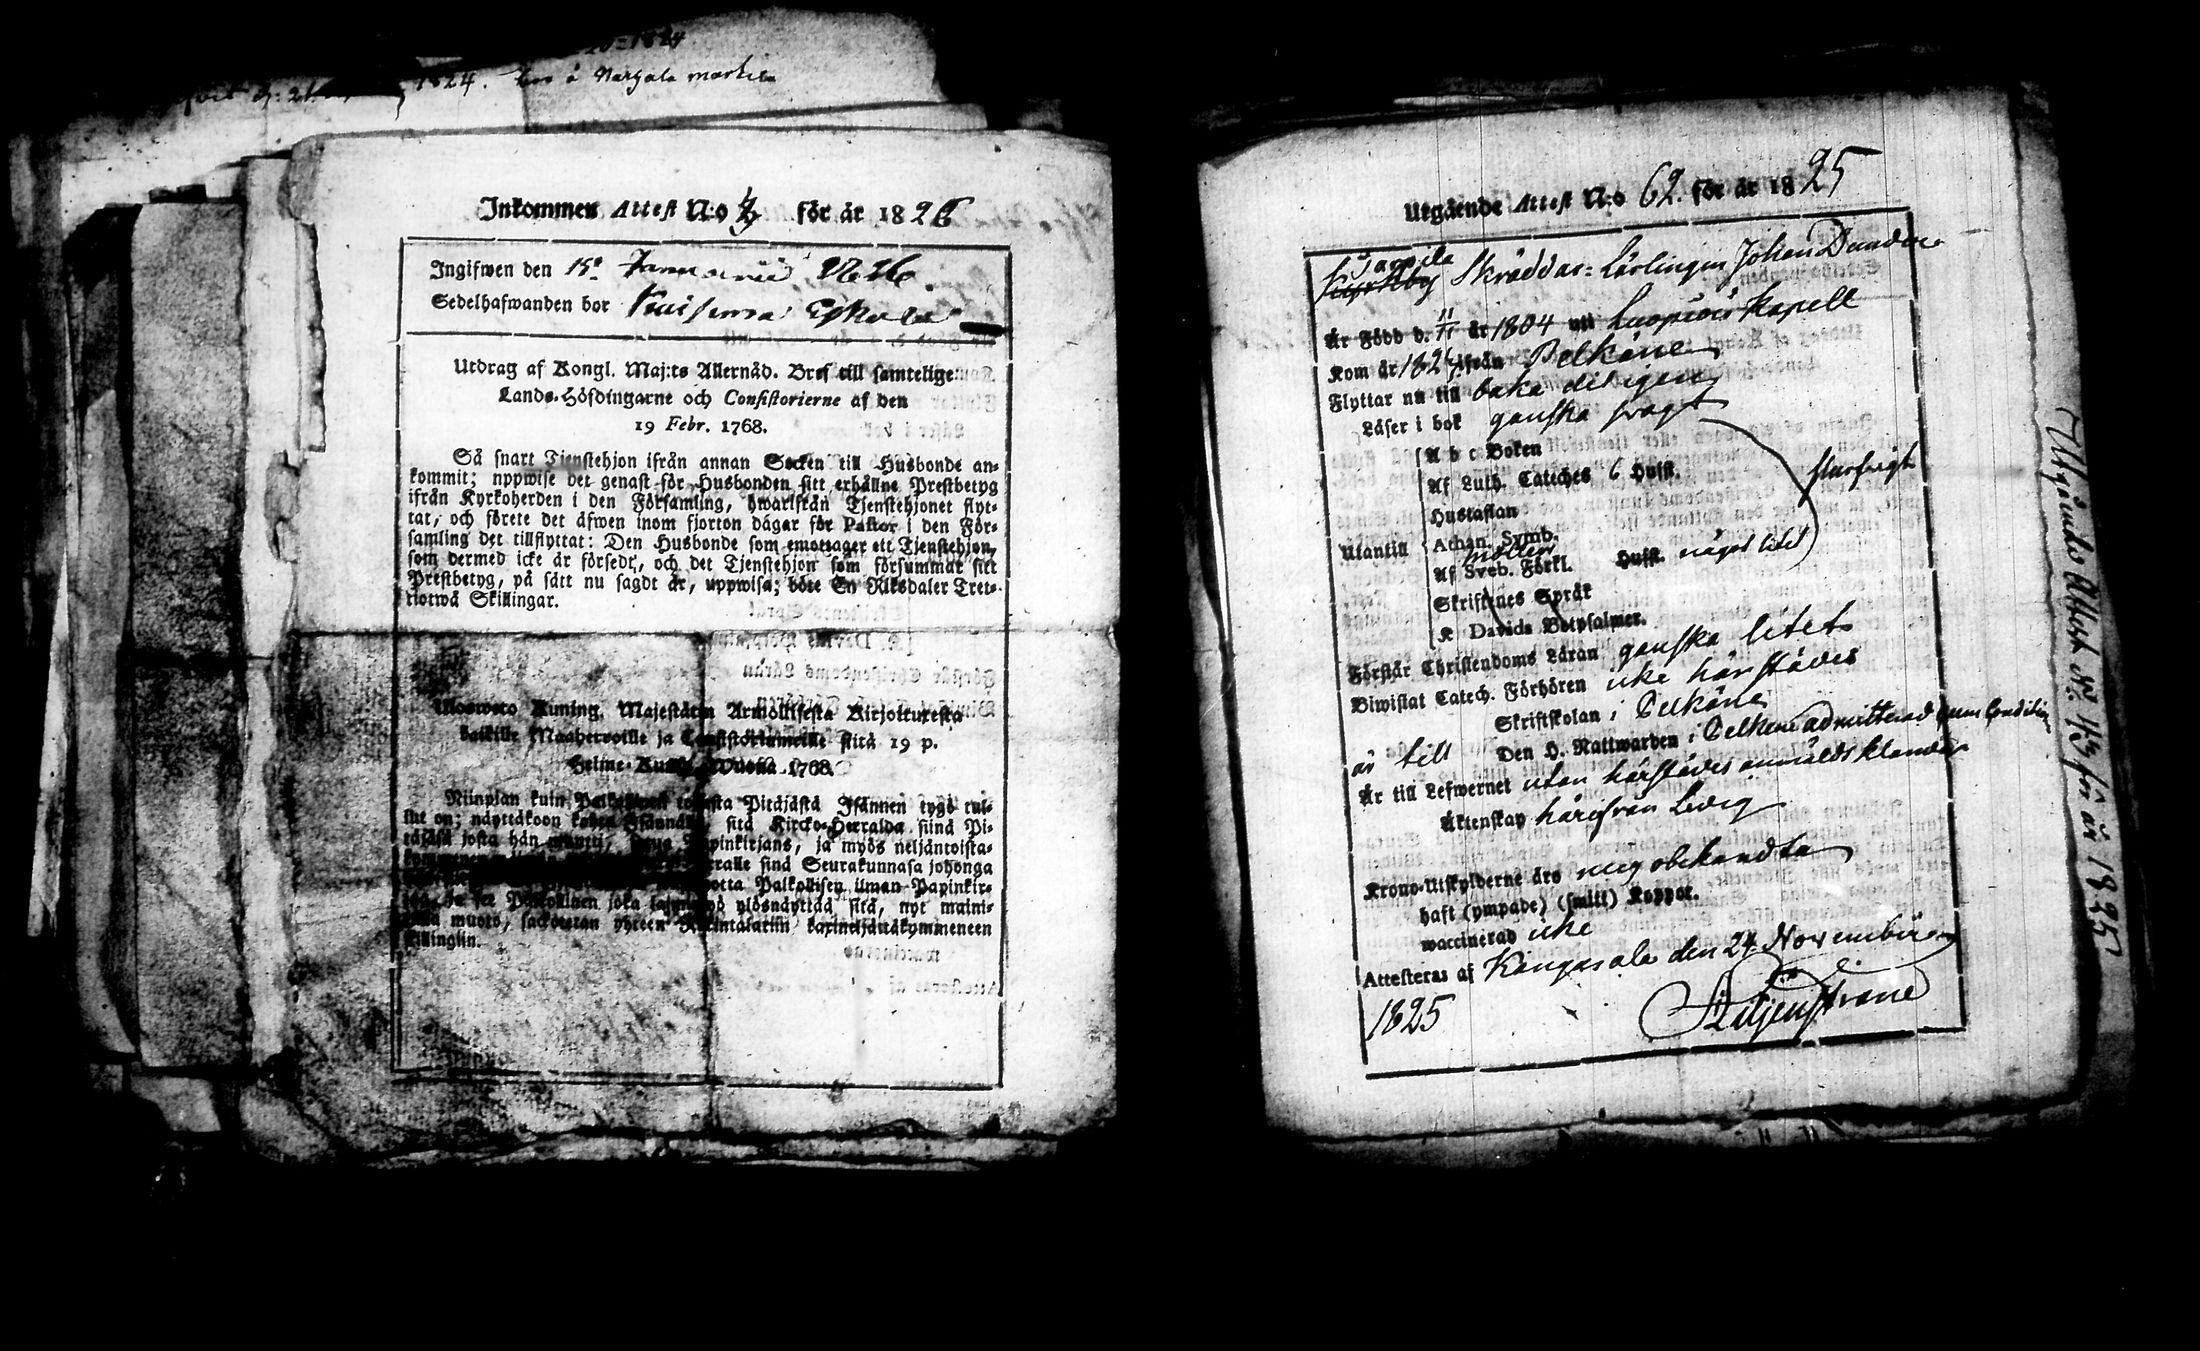 1824. bor å Markala
Inkommen Attest N:o för år 1826
Ingifwen den 15 Januarii 1826.
Sedelhafwanden bor Kuisema Eskola
Utdrag af Kongl. Maj:ts Allernåd. Bref till samtelige
Lands-Höfdingarne och Consistorierne af den
19 Febr. 1768.
Så snart Tjenstehjon ifrån annan Socken till Husbonde an-
kommit; uppwise det genast för Husbonden sitt erhållne Prestbetyg
ifrån Kyrkoherden i den Församling, hwarifrån Tjenstehjonet flyt-
tat, och förete det äfwen inom fjorton dagar för Pastor i den För-
samling det tillflyttat: Den Husbonde som emottager ett Tjenstehjon,
som dermed icke är försedt, och det Tjenstehjon som försummar sitt
Prestbetyg, på sätt nu sagdt är, uppwisa; böte En Riksdaler Tret-
tiotwå Skillingar.
Ulosweto Kuning. Majestätin Armollisesta Kirjoituxesta
kaikille Maaherroille ja Consistoriumeille siitä 19 p.
Helme-Kuusa Wuona 1768.
Niinpian kuin Palkollinen toisesta Pitäjästä Isännen tygö tul-
lut on; näyttäköön kohta Isännälle, sitä Kircko-Herralda siinä Pi-
täjäsä josta hän muutti, Papinkirjans, ja myös neljäntoista-
siinä Seurakunnasa johonga
otta Palkollisen ilman Papinkir-
Palkollinen joka ylösnäyttää sitä, nyt maini-
muoto, sackotetan yhteen Rikintalariin kaxineljättäkymmeneen
killingiin.
Utgående Attest N:o 62. för år 1825
Sarpila
Kyrkby Skräddar-Lärlingen Johan
Är Född d. 11/11 år 1804 uti Luopiois Kapell
Kom år 182 ifrån Pelkäne
Flyttar nu till baka dit igen
Läser i bok ganska swagt
A b c Boken
Af Luth. Cateches 6 Hufst.
Hustaflan
Utantill Athan. Symb.
Af Sveb. Förkl. Hufst. något litet
Skriftenes Språk
K Davids Botpsalmer.
Förstår Christendoms Läran ganska litet
Biwistat Catech. Förhören icke härstädes
Skriftskolan i Pelkäne
Den H. Nattwarden i Pelkene admitterad
är till
Är till Lefwernet utan härstädes anmäldt klander
Äktenskap härifrån Ledig
Krono-Utskylderne äro mig obekandta
haft (ympade) (smitt) Koppor.
waccinerad icke
Attesteras af Kangasala den 24 November
1825
Utgående Attest N:o för år 1825